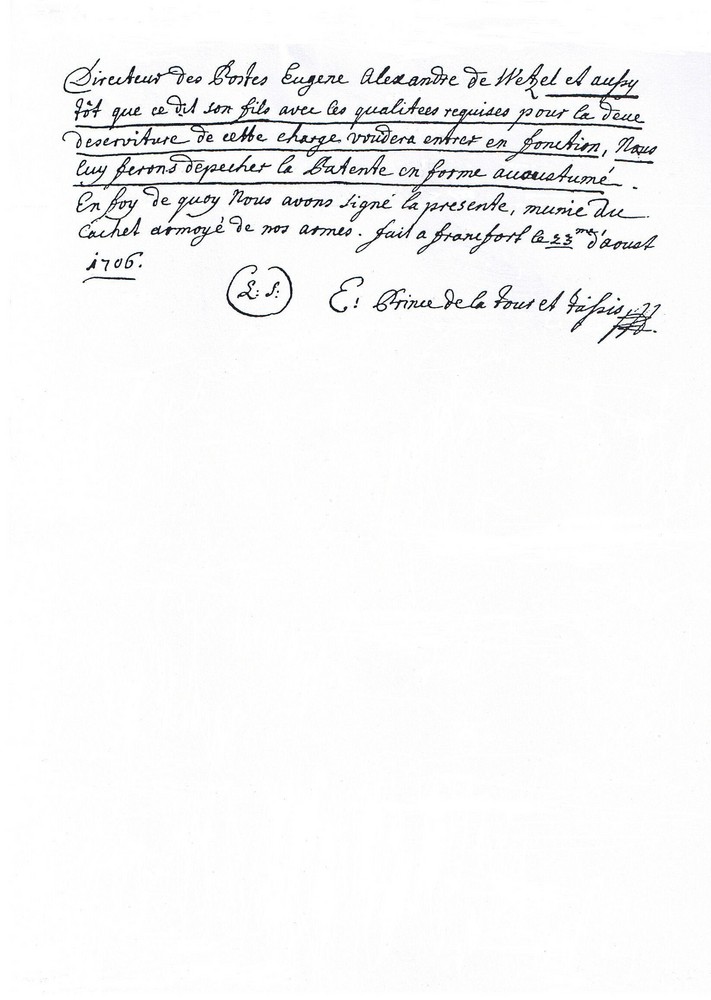 Directeur des Postes Eugene Alexandre de Wetzel et aussy
tôt que ce dit son fils avec les qualitees requises pour la deüe
deserviture de cette charge voudera entrer en fonction, Nous
luy ferons depecher la Patente en forme accoustumé.
En foy de quoy Nous avons signé la presente, munie du
Cachet armoyé de nos armes. fait a francfort le 23me d'aoust
1706.
L: S:
E: Prince de la tour et tassis